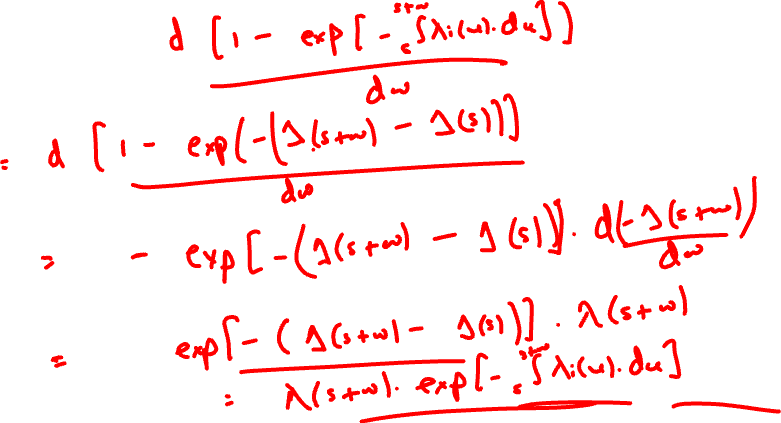 d [1 - exp[-ₛ∫ˢ⁺ʷ λi(u).du]]
dw
= d [1 - exp(-(Λ(s+w) - Λ(s))]]
dw
= - exp[-(Λ(s+w) - Λ(s)]]. d(-Λ(s+w))
dw
= exp[-(Λ(s+w) - Λ(s))]. λ(s+w)
= λ(s+w). exp[-ₛ∫ˢ⁺ʷ λi(u).du]